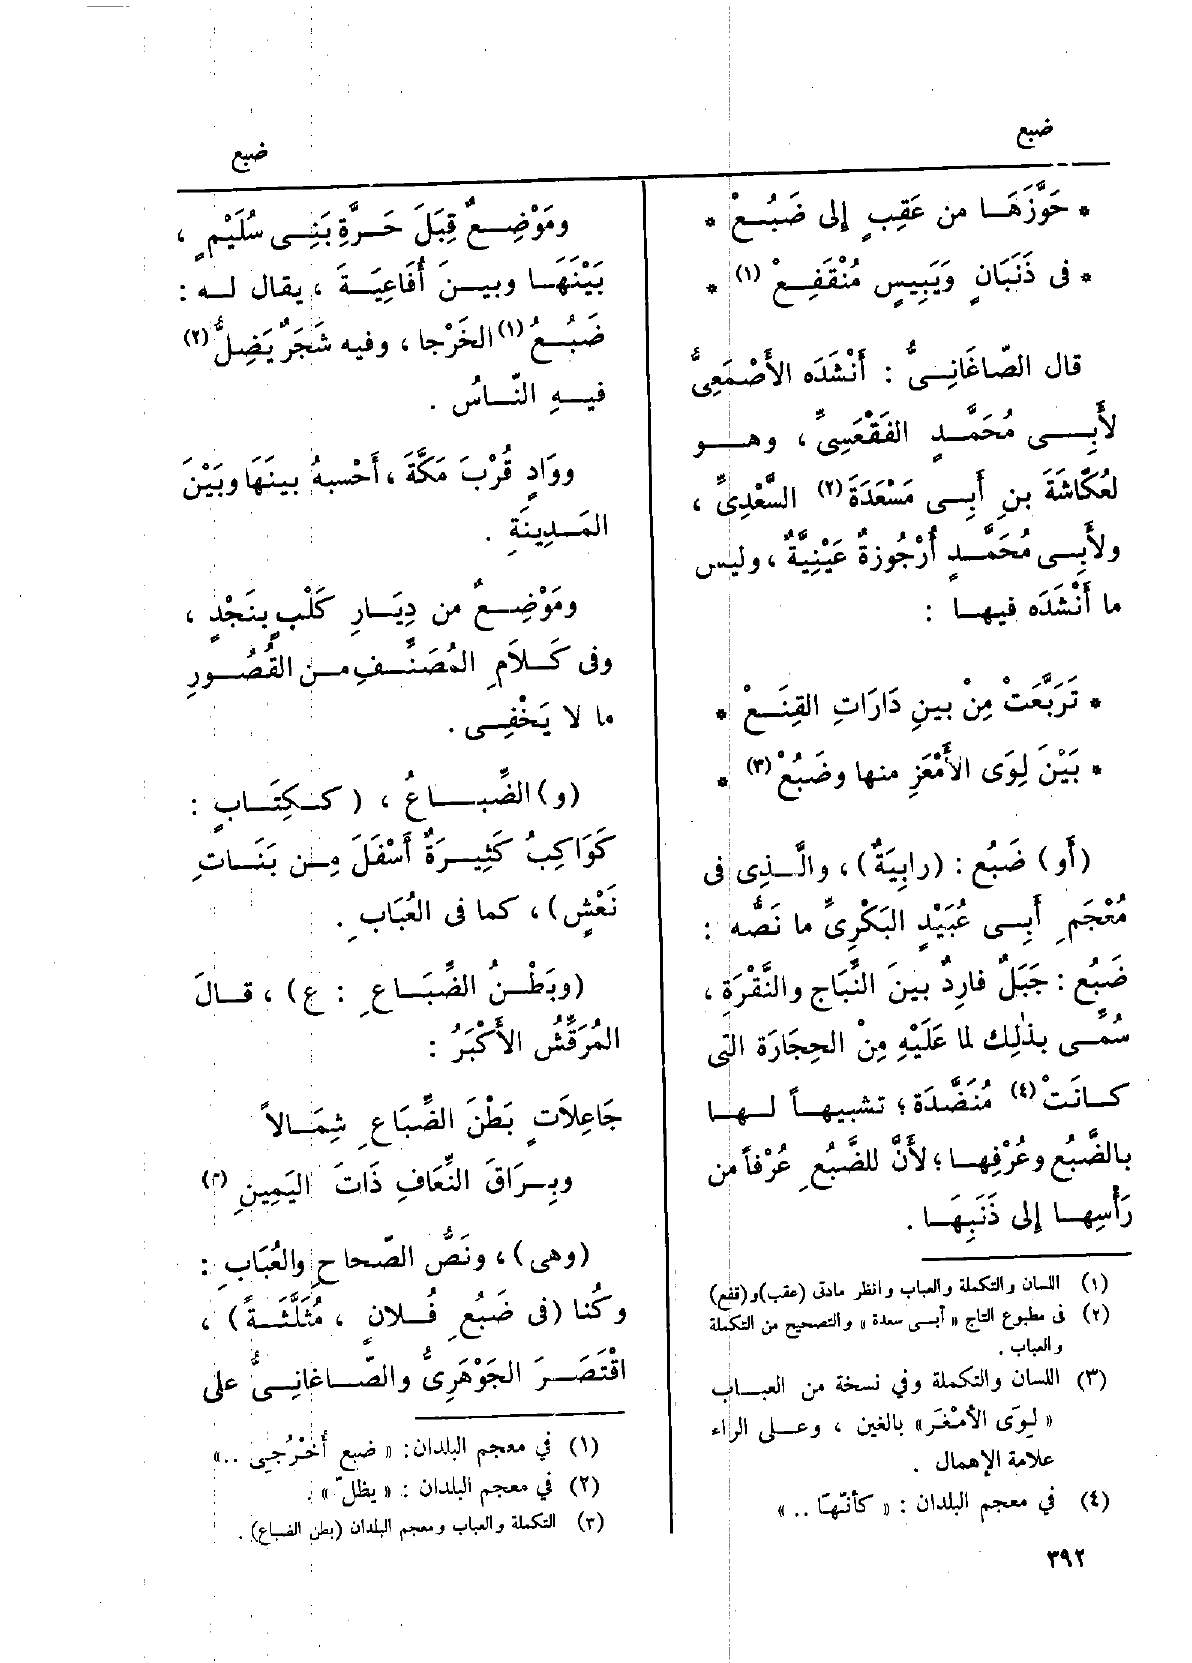 ضبع
ضبع
* حَوَّزَهَا من عَقِبٍ إلى ضَبُعْ *
* فى ذَنَبَانٍ وَيَبِيسٍ مُنْقَفِعْ (١) *
قال الصّاغَانِىُّ : أَنْشَدَه الأَصْمَعِىُّ
لأَبِى مُحَمَّدٍ الفَقْعَسِىِّ ، وهو
لعُكّاشَةَ بنِ أَبِى مَسْعَدَةَ (٢) السَّعْدِىِّ ،
ولأَبِى مُحَمَّدٍ أُرْجُوزةٌ عَيْنِيَّةٌ ، وليس
ما أَنْشَدَه فيها :
* تَرَبَّعَتْ مِنْ بينِ دَارَاتِ القِنَعْ *
* بَيْنَ لِوَى الأَمْعَزِ منها وضَبُعْ (٣) *
(أَو) ضَبُع : (رابِيَةٌ) ، والَّذِى فى
مُعْجَمِ أَبِى عُبَيْدٍ البَكْرِىِّ ما نَصُّه :
ضَبُع : جَبَلٌ فارِدٌ بينَ النِّبَاج والنَّقْرَةِ ،
سُمِّى بذٰلِك لما عَلَيْهِ مِنْ الحِجَارَة التى
كانَتْ (٤) مُنَضَّدَة ؛ تشبيهاً لها
بالضَّبُع وعُرْفِها ؛ لأَنَّ للضَّبُعِ عُرْفاً من
رَأْسِها إلى ذَنَبِهَا .
(١) اللسان والتكملة والعباب وانظر مادتى (عقب) و(قفع)
(٢) فى مطبوع التاج « أبى سعدة » والتصحيح من التكملة
والعباب .
(٣) اللسان والتكملة وفي نسخة من العباب
« لِوَى الأمْغَر » بالغين ، وعلى الراء
علامة الإهمال .
(٤) في معجم البلدان : « كأنّهَا .. »
٣٩٢
ومَوْضِعٌ قِبَلَ حَرَّةِ بَنِى سُلَيْمٍ ،
بَيْنَهَا وبينَ أُفَاعِيَةَ ، يقال له :
ضَبُعُ (١) الخَرْجا ، وفيه شَجَرٌ يَضِلُّ (٢)
فيهِ النّاسُ .
ووَادٍ قُرْبَ مَكَّةَ ، أَحْسبهُ بينَهَا وبَيْنَ
المَدِينَةِ .
ومَوْضِعٌ من دِيَارِ كَلْبٍ بنَجْدٍ ،
وفى كَلامِ المُصَنِّفِ من القُصُورِ
ما لا يَخْفَى .
(و) الضِّبَاعُ ، ( ككِتَابٍ :
كَوَاكِبُ كَثِيرَةٌ أَسْفَلَ مِن بَنَاتِ
نَعْشٍ) ، كما فى العُبَابِ .
(وبَطْنُ الضِّبَاعِ : ع) ، قالَ
المُرَقِّشُ الأَكْبَرُ :
جَاعِلاَتٍ بَطْنَ الضِّبَاعِ شِمَالاً
وبِرَاقَ النِّعَافِ ذَاتَ اليَمِينِ (٣)
(وهى) ، ونَصُّ الصّحاحِ والعُبَابِ :
وكُنا (فى ضَبُعِ فُلانٍ ، مُثَلَّثَةً) ،
اقْتَصَرَ الجَوْهَرِىُّ والصّاغانِىُّ على
(١) في معجم البلدان: « ضبع أخْرُجِيى .. »
(٢) في معجم البلدان : « يظلّ » .
(٣) التكملة والعباب ومعجم البلدان (بطن الضباع) .